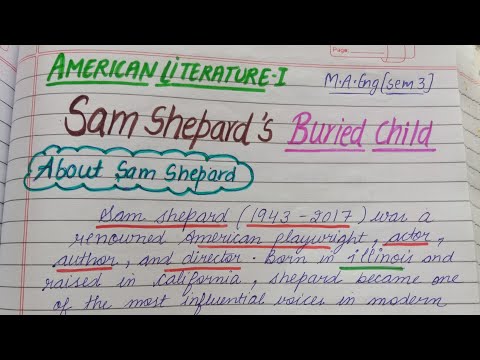 Page:
AMERICAN LITERATURE-I
M.A.Eng[sem 3]
Sam Shepard's Buried Child
About Sam Shepard
Sam shepard (1943-2017) was a
renowned American playwright, actor,
author, and director. Born in illinois and
raised in California, Shepard became one
of the most influential voices in modern